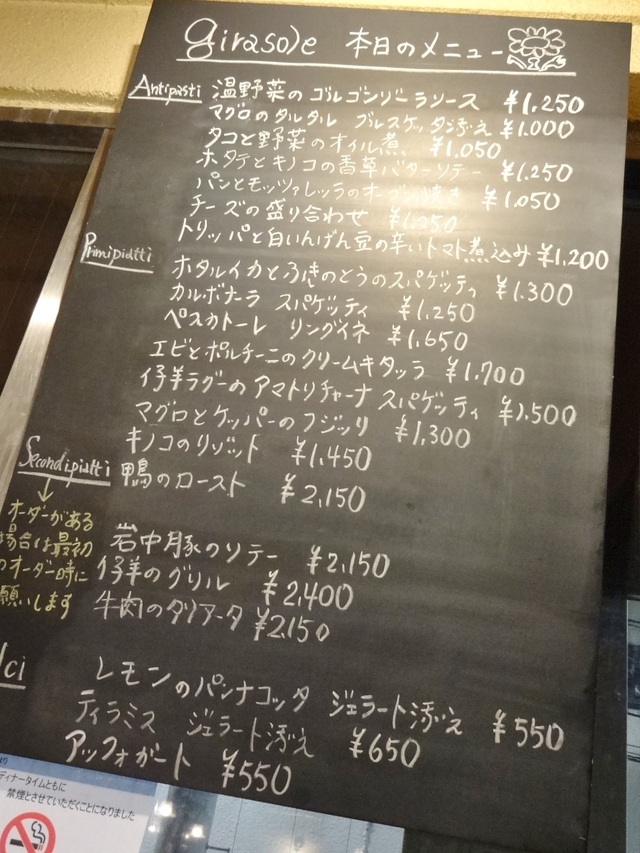 girasole 本日のメニュー
Antipasti 温野菜のゴルゴンゾーラソース ¥1,250
マグロのタルタル ブルスケッタ添え ¥1,000
タコと野菜のオイル煮 ¥1,050
ホタテとキノコの香草バターソテー ¥1,250
パンとモッツァレッラのオーブン焼き ¥1,050
チーズの盛り合わせ ¥1,250
トリッパと白いんげん豆の辛いトマト煮込み ¥1,200
Primi piatti
ホタルイカとふきのとうのスパゲッティ ¥1,300
カルボナーラ スパゲッティ ¥1,250
ペスカトーレ リングイネ ¥1,650
エビとポルチーニのクリームキタッラ ¥1,700
仔羊ラグーのアマトリチャーナ スパゲッティ ¥1,500
マグロとケッパーのフジッリ ¥1,300
キノコのリゾット ¥1,450
Secondi piatti 鴨のロースト ¥2,150
岩中豚のソテー ¥2,150
仔羊のグリル ¥2,400
牛肉のタリアータ ¥2,150
オーダーがある
場合は最初
のオーダー時に
願いします
lci
レモンのパンナコッタ ジェラート添え ¥550
ティラミス ジェラート添え ¥650
アッフォガート ¥550
より
ディナータイムともに
禁煙とさせていただくことになりました